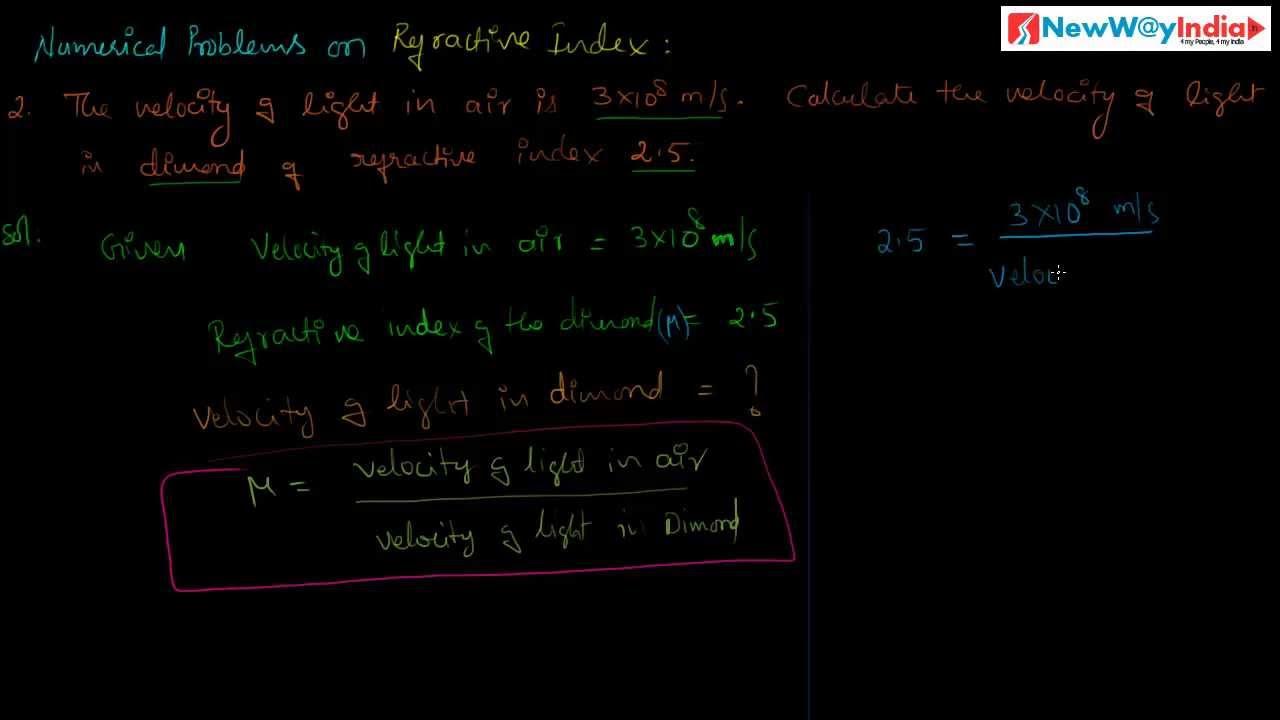 Numerical Problems on Refractive Index :
NewW@yIndia
4 my People, 4 my India
2. The velocity of light in air is 3×10⁸ m/s. Calculate the velocity of light
in dimond of refractive index 2.5.
Sol.
Given Velocity of light in air = 3×10⁸ m/s
Refractive index of the dimond (μ) = 2.5
Velocity of light in dimond = ?
μ = velocity of light in air
velocity of light in Dimond
2.5 = 3×10⁸ m/s
Veloc